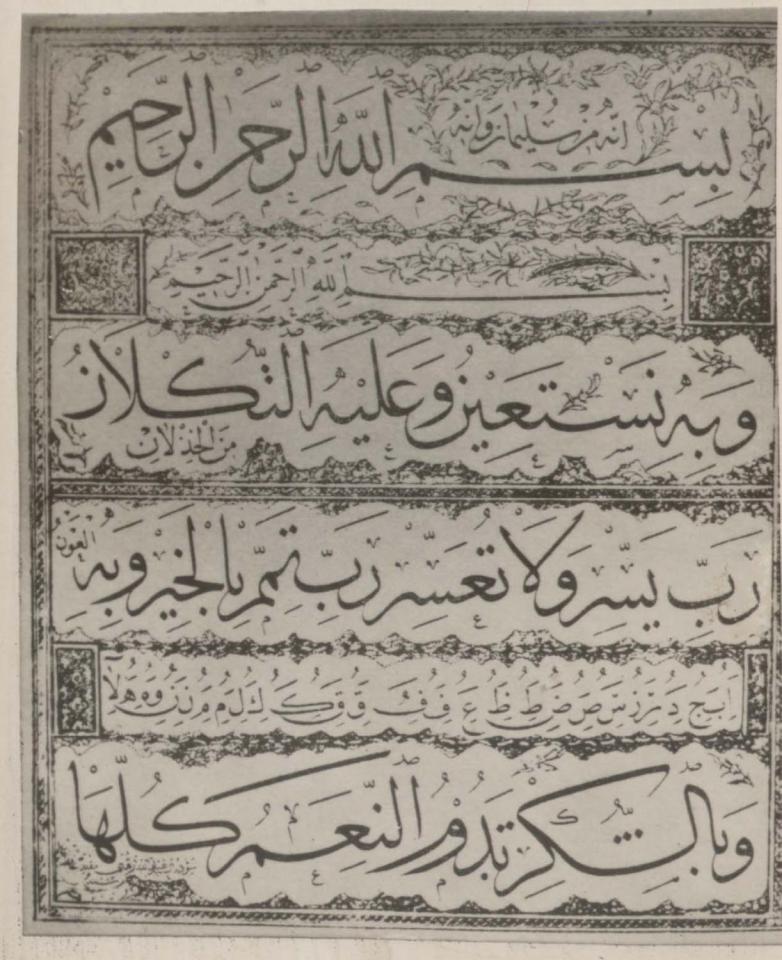 انه من سليمان وانه
بسم الله الرحمن الرحيم
بسم الله الرحمن الرحيم
وبه نستعين وعليه التكلان
من الخذلان
رب يسر ولا تعسر رب تمم بالخير وبه
العون
ا ب ج د ر ز س ص ض ط ظ ع ف ف ق ق ك ك ل م م ن ن و ه هلا
وبالشكر تدوم النعم كلها